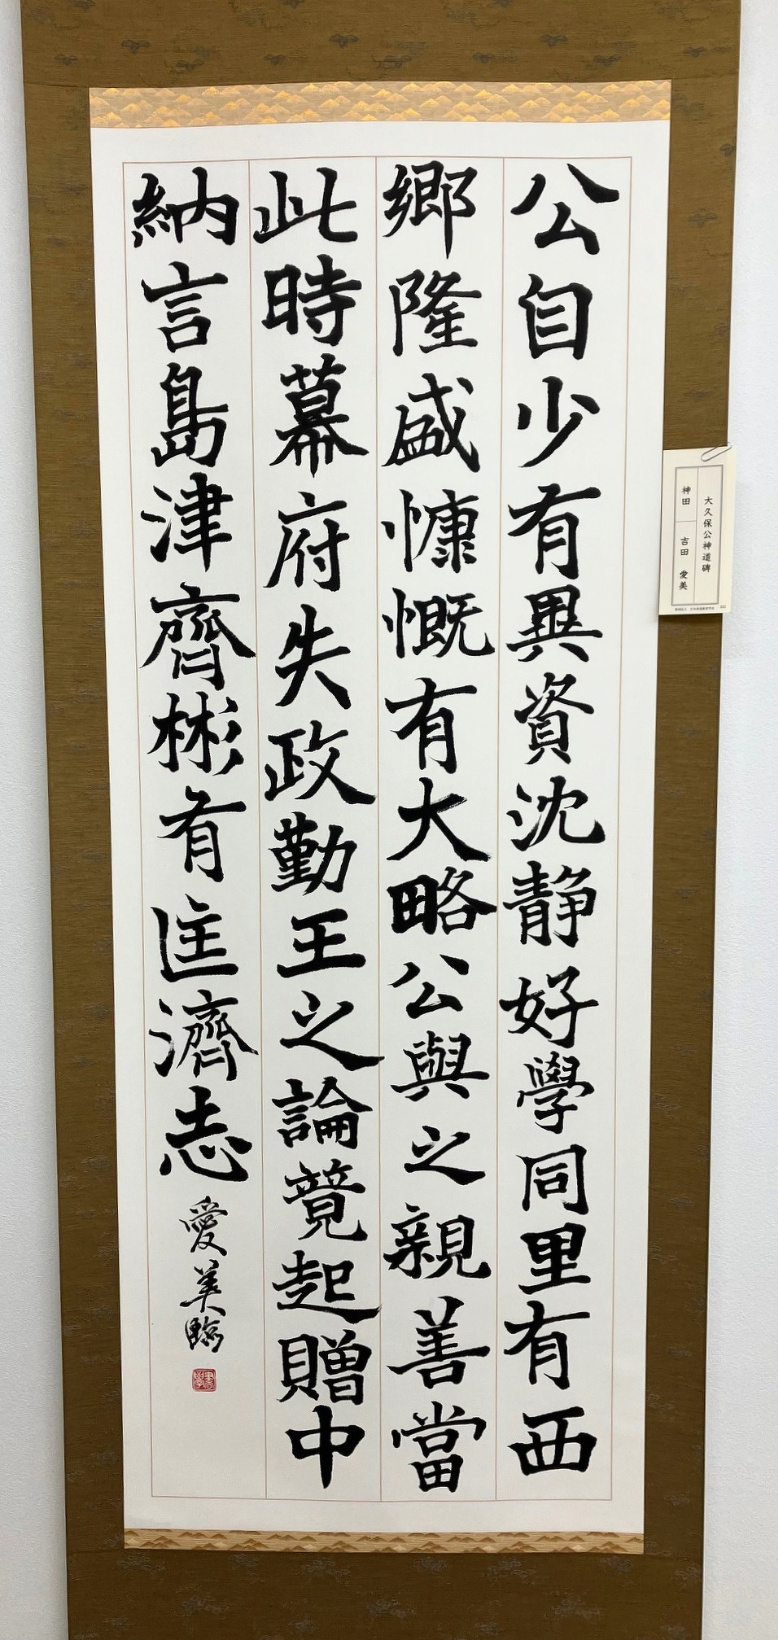 公自少有異資沈靜好學同里有西
鄉隆盛慷慨有大略公與之親善當
此時幕府失政勤王之論竟起贈中
納言島津齊彬有匡濟志
愛美臨
大久保公神道碑
神田 吉田 愛美